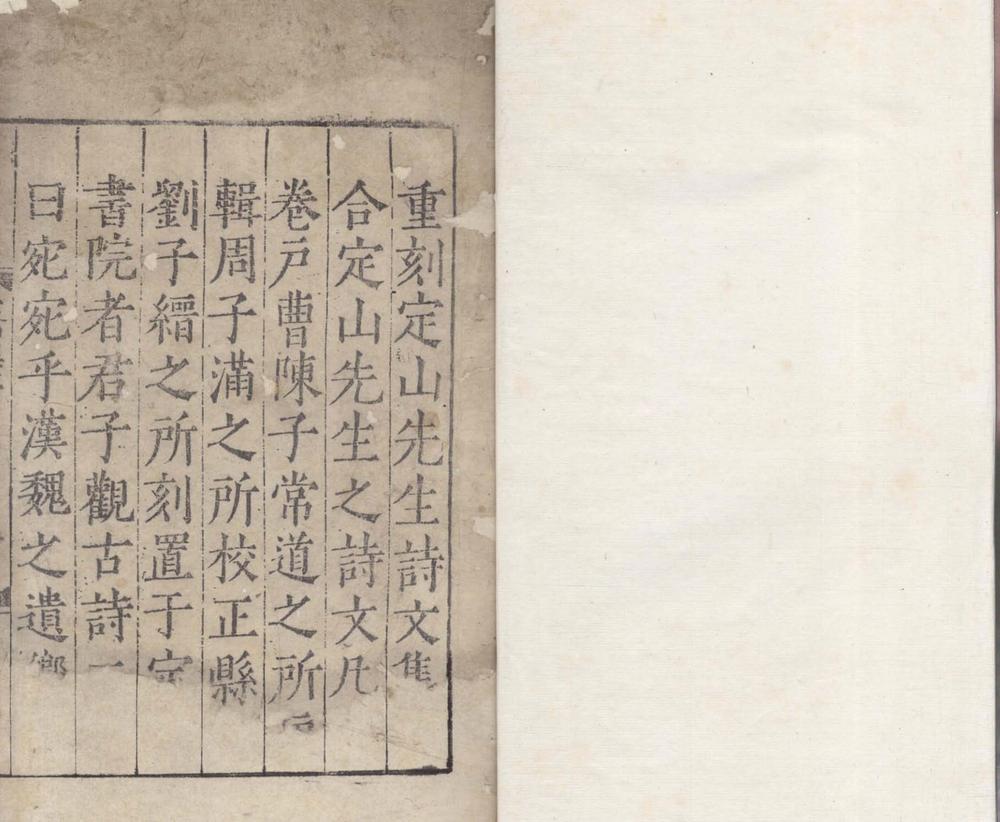 重刻定山先生詩文集
合定山先生之詩文凡
卷戶曹陳子常道之所
輯周子滿之所校正縣
劉子縉之所刻置于定
書院者君子觀古詩
曰宛宛乎漢魏之遺